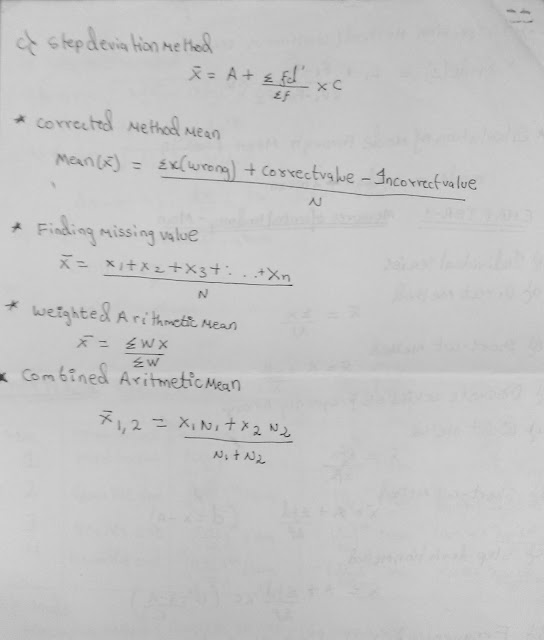 c) step deviation Method
x̄ = A + Σfd' / Σf × C
* Corrected Method Mean
Mean(x̄) = Σx(wrong) + Correct value - Incorrect value / N
* Finding Missing value
x̄ = x₁ + x₂ + x₃ + ... + xn / N
* Weighted Arithmetic Mean
x̄ = ΣWX / ΣW
* Combined Aritmetic Mean
x̄₁,₂ = x₁N₁ + x₂N₂ / N₁ + N₂